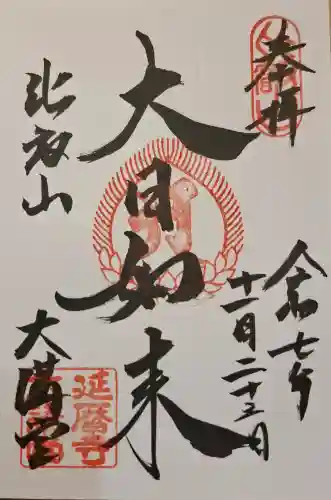 奉拝
令和七年
十一月二十三日
大日如来
比叡山
大講堂
延暦寺